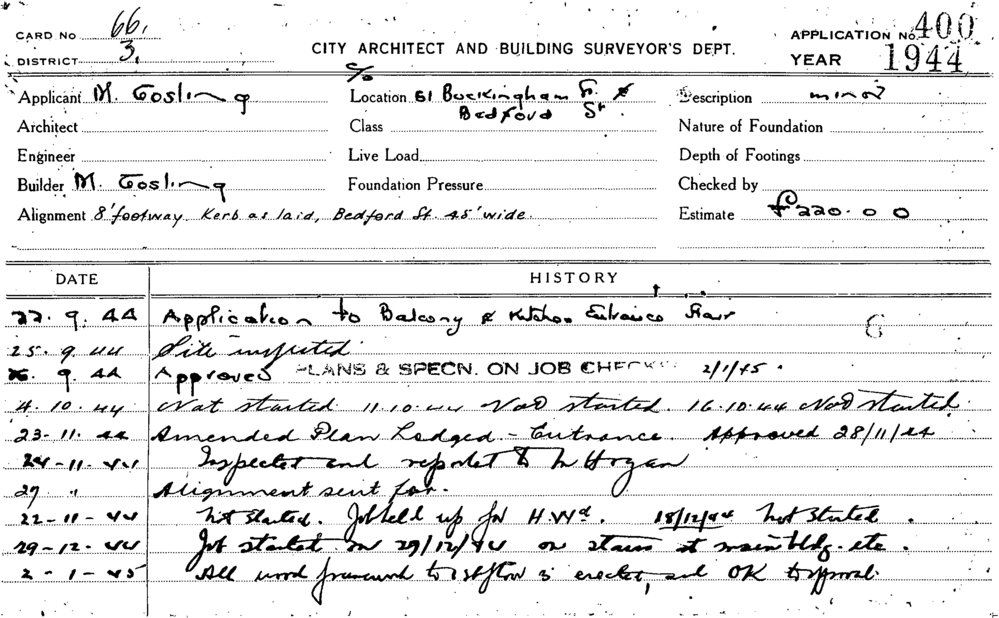 CARD No 66.
APPLICATION No. 400
DISTRICT 3.
CITY ARCHITECT AND BUILDING SURVEYOR'S DEPT.
YEAR 1944
Applicant M. Gosling
Location c/o 61 Buckingham St. &
Bedford St.
Description minor
Architect
Class
Nature of Foundation
Engineer
Live Load
Depth of Footings
Builder M. Gosling
Foundation Pressure
Checked by
Alignment 8' footway. Kerb as laid, Bedford St. 45' wide.
Estimate £220.00
DATE HISTORY
22. 9. 44 Application to Balcony & Kitchen Entrance Stair
6
25. 9. 44 Site inspected
9. 44 Approved PLANS & SPECN. ON JOB 2/1/45.
4. 10. 44 Not started 11.10.44 Not started. 16.10.44 Not started.
23-11. 44 Amended Plan Lodged - Entrance. Approved 28/11/44
24-11. 44 Inspected and reported to Mr Hogan
27 " Alignment sent for.
22-11-44 Not started. Job held up for H.Wd. 18/12/44 Not started.
29-12-44 Job started on 29/12/44 on stairs at main bldg. etc.
2-1-45 All wood framework to 1st floor is erected, and OK